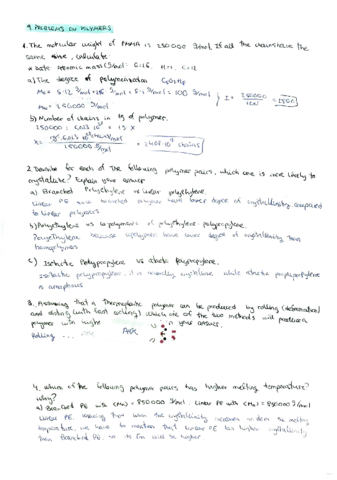 9. PROBLEMS ON POLYMERS
1. The molecular weight of PMMA is 250000 g/mol. If all the chains have the
same size, calculate:
* Data: Atomic mass (g/mol): O:16, H:1, C:12
a) The degree of polymerization C5O2H8
M0 = 5·12 g/mol + 2·16 g/mol + 8·1 g/mol = 100 g/mol
b) Number of chains in 1g of polymer.
250000 : 6,023·10
X =
chains
2. Describe for each of the following polymer pairs, which one is more likely to
crystallize? Explain your answer
a) Branched Polyethylene vs linear polyethylene.
Linear PE branched polymer have lower degree of crystallinity compared
to linear polymers
b) Polyethylene vs copolymers of polyethylene-polypropylene.
Polyethylene because copolymers have lower degree of crystallinity than
homopolymers
c) Isotactic Polypropylene vs atactic polypropylene.
Isotactic polypropylene, it is normally crystalline while atactic polypropylene
is amorphous
3. Assuming that a thermoplastic polymer can be produced by rolling (deformation)
and casting (with fast cooling), which one of the two methods will produce a
polymer with higher your answer.
Rolling ...
4. Which of the following polymer pairs has higher melting temperature?
Why?
a) Branched PE with (Mw) = 850000 g/mol. Linear PE with (Mw) = 850000 g/mol
Linear PE, knowing that when the crystallinity increases so does the melting
temperature, we have to mention that linear PE has higher crystallinity
than Branched PE, so its Tm will be higher